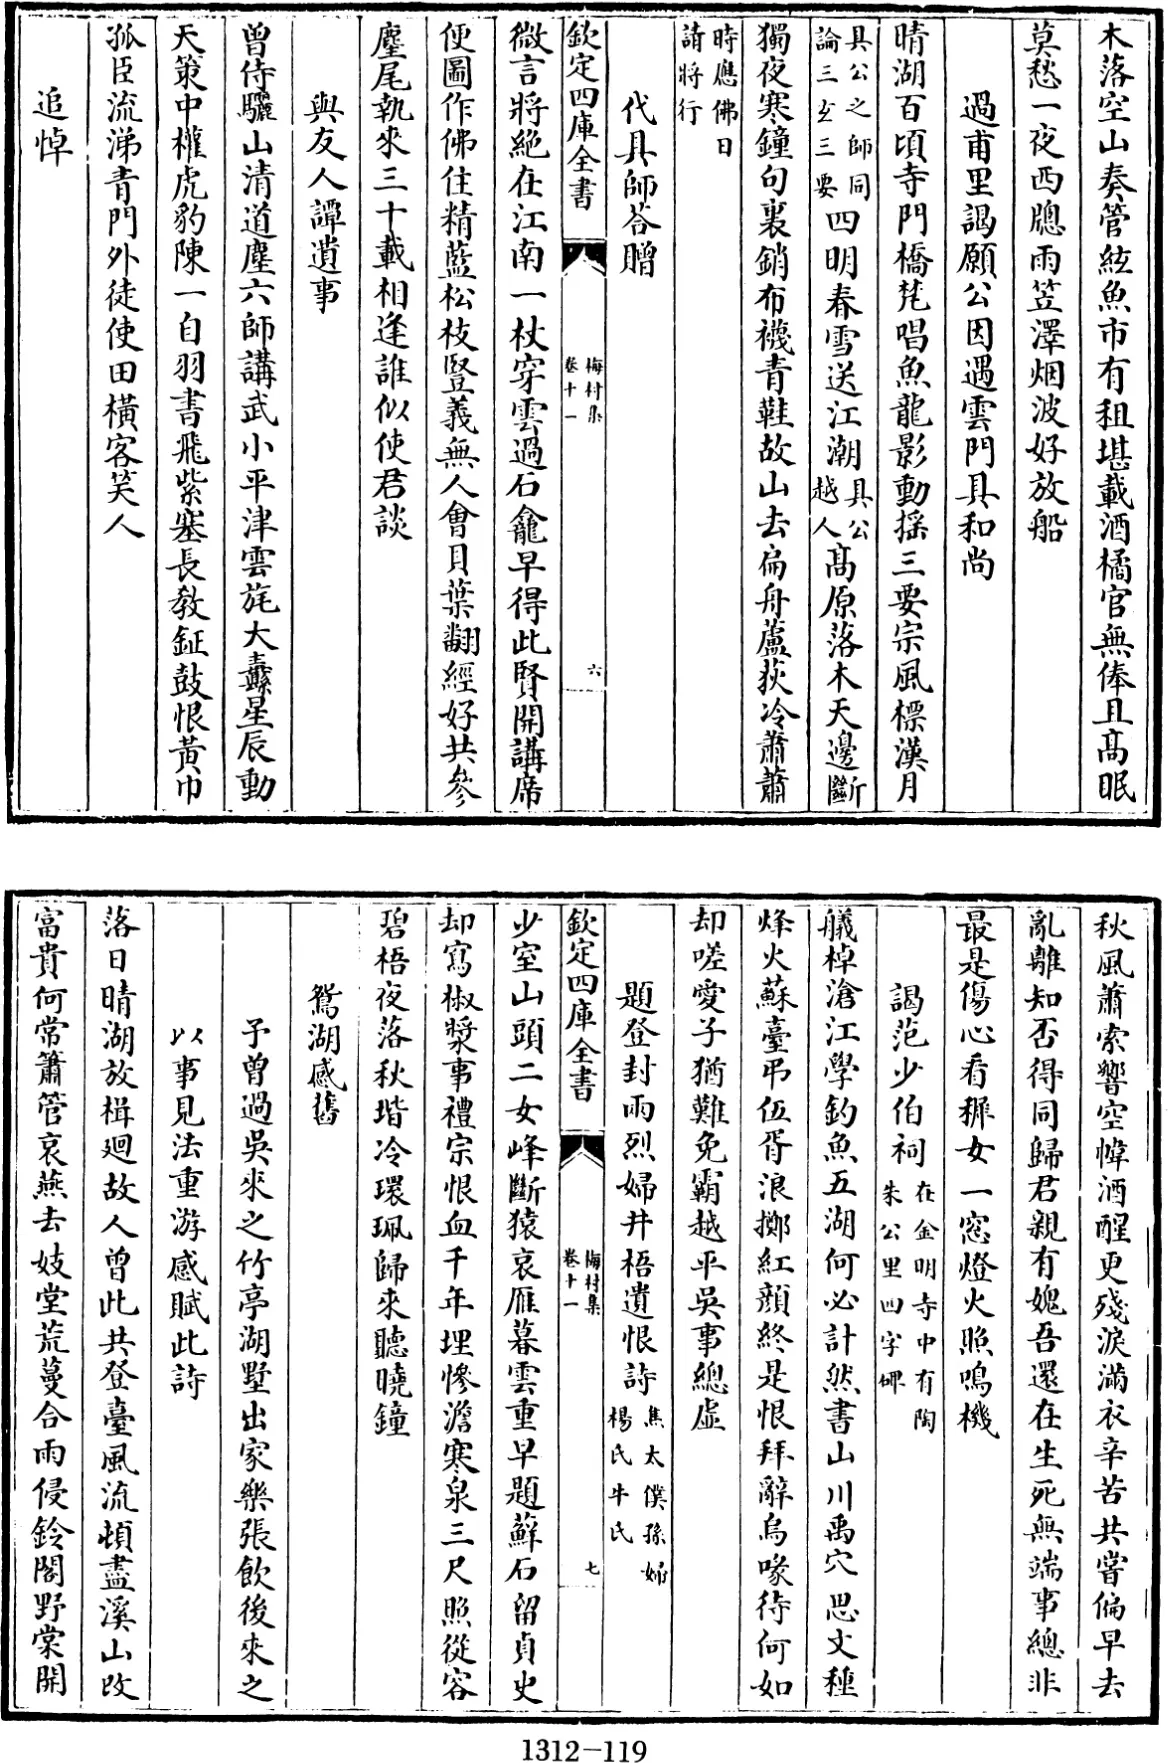 木落空山奏管絃魚市有租堪載酒橘官無俸且髙眠
莫愁一夜西牕雨笠澤烟波好放船
過甫里謁願公因遇雲門具和尚
晴湖百頃寺門橋梵唱魚龍影動摇三要宗風標漢月
具公之師同
論三玄三要
四明春雪送江潮
具公
越人
髙原落木天邊斷
獨夜寒鐘句裏銷布襪青鞋故山去扁舟蘆荻冷蕭蕭
時應佛日
請將行
代具師荅贈
欽定四庫全書
梅村集
卷十一
六
微言將絶在江南一杖穿雲過石龕早得此賢開講席
便圖作佛住精藍松枝豎義無人會貝葉翻經好共參
麈尾執來三十載相逢誰似使君談
與友人譚遺事
曾侍驪山清道塵六師講武小平津雲旄大纛星辰動
天策中權虎豹陳一自羽書飛紫塞長教鉦鼓恨黄巾
孤臣流涕青門外徒使田橫客笑人
追悼
秋風蕭索響空幃酒醒更殘淚滿衣辛苦共嘗偏早去
亂離知否得同歸君親有媿吾還在生死無端事總非
最是傷心看穉女一窓燈火照鳴機
謁范少伯祠
在金明寺中有陶
朱公里四字碑
艤棹滄江學釣魚五湖何必計然書山川禹穴思文種
烽火蘇臺弔伍胥浪擲紅顔終是恨拜辭烏喙待何如
却嗟愛子猶難免霸越平吳事總虛
題登封兩烈婦井梧遺恨詩
焦太僕孫婦
楊氏牛氏
欽定四庫全書
梅村集
卷十一
七
少室山頭二女峰斷猿哀雁暮雲重早題蘚石留貞史
却寫椒漿事禮宗恨血千年埋慘澹寒泉三尺照從容
碧梧夜落秋堦冷環珮歸來聽曉鐘
鴛湖感舊
予曾過吳來之竹亭湖墅出家樂張飲後來之
以事見法重游感賦此詩
落日晴湖放楫廻故人曾此共登臺風流頓盡溪山改
富貴何常簫管哀燕去妓堂荒蔓合雨侵鈴閣野棠開
1312-119